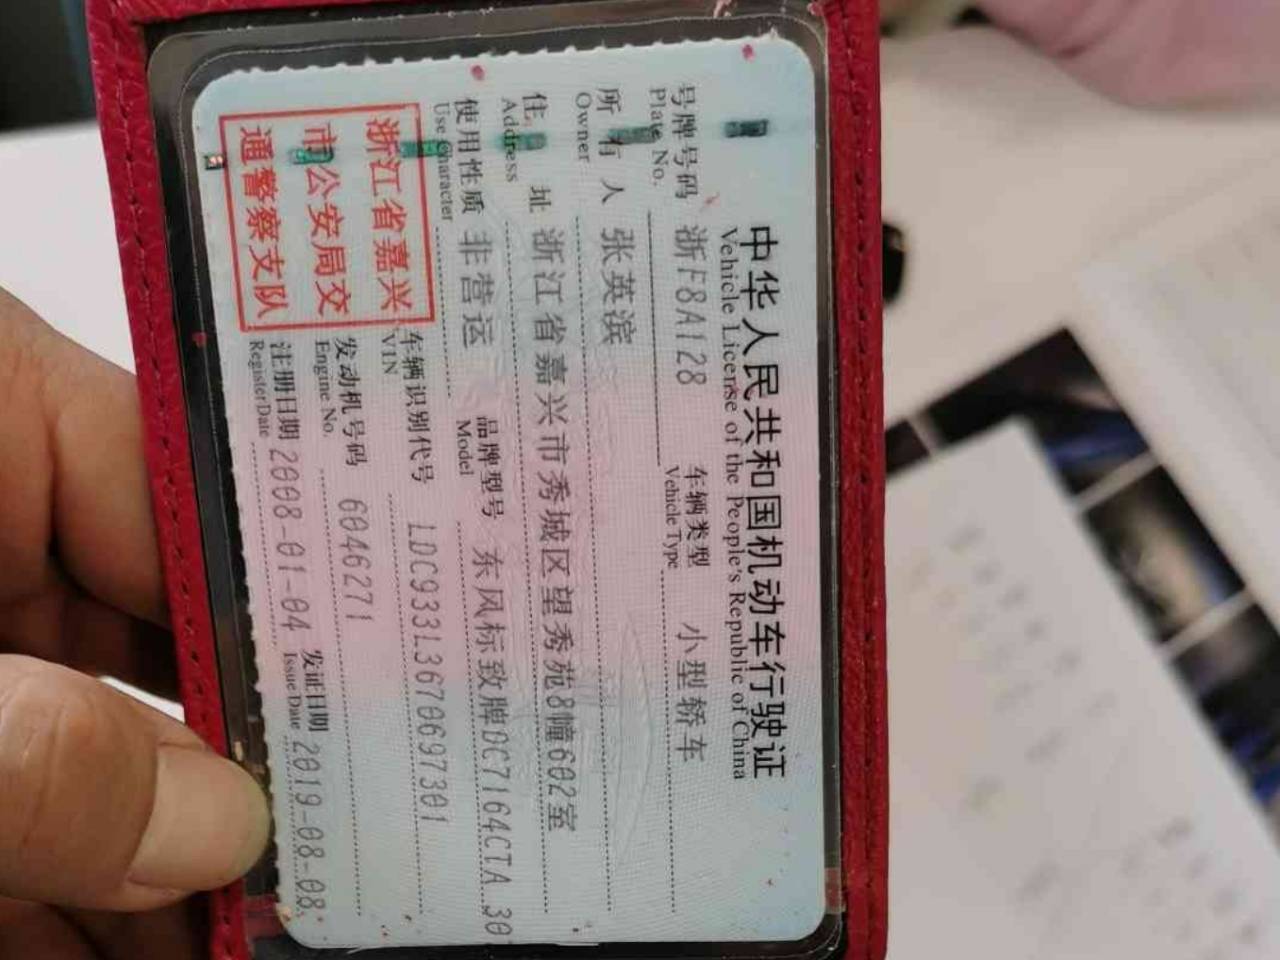 中华人民共和国机动车行驶证
Vehicle License of the People's Republic of China
号牌号码 浙F8A128 车辆类型 小型轿车
Plate No. Vehicle Type
所有人 张英滨
Owner
住址 浙江省嘉兴市秀城区望秀苑8幢602室
Address
使用性质 非营运 品牌型号 东风标致牌DC7164CTA 30
Use Character Model
浙江省嘉兴
市公安局交
通警察支队
车辆识别代号 LDC933L3670697301
VIN
发动机号码 6046271
Engine No.
注册日期 2008-01-04 发证日期 2019-08-08
Register Date Issue Date